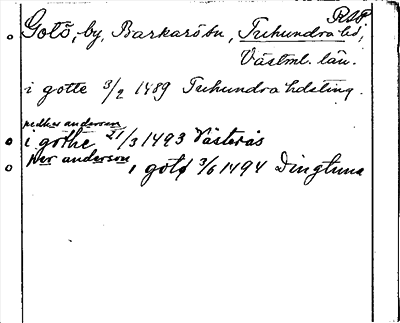 RAP
Gotö, by, Barkarö sn, Tuhundra hd,
Västml. län.
i gotte 3/2 1489 Tuhundra hdsting.
pedher anderson
i göthe 21/3 1493 Västerås
Per anderson, i gotö 3/6 1494 Dingtuna